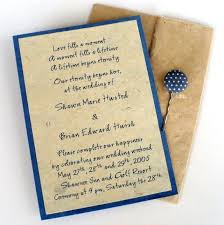 Love fills a moment
A moment fills a lifetime
A lifetime begins eternity
Our eternity begins here,
at the wedding of
Shawn Marie Husted
&
Brian Edward Huish
Please complete our happiness
by celebrating our wedding weekend
May 27th, 28th and 29th, 2005
Shawnee Inn and Golf Resort
Ceremony at 4 pm, Saturday the 28th.